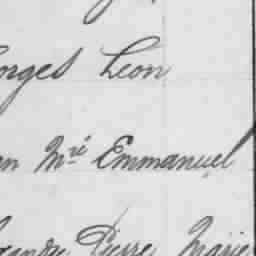 orges Leon
en M.ré Emmanuel
exandre Pierre Marie